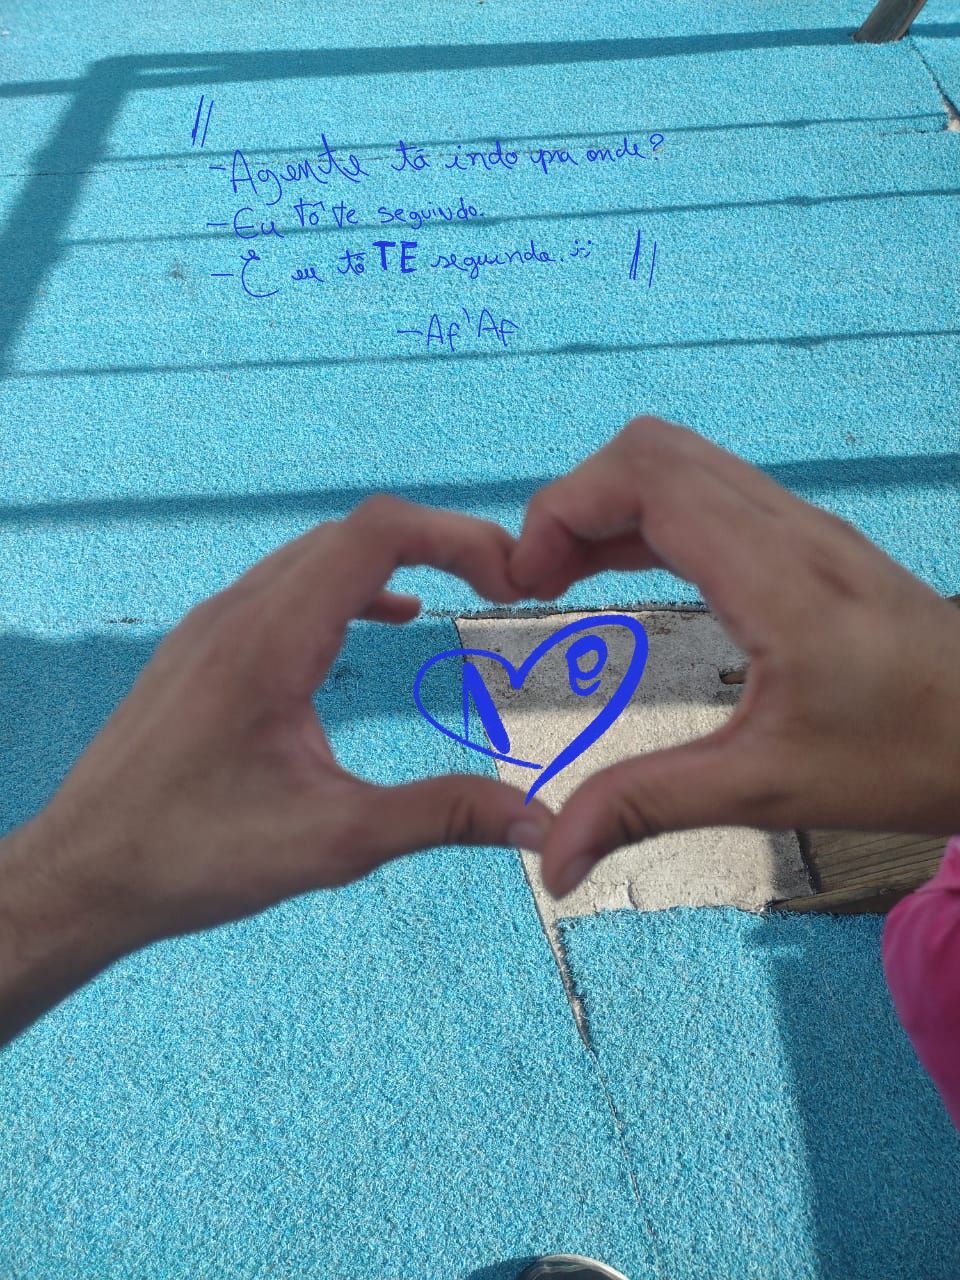 "
-Agente tá indo pra onde?
-Eu tô te seguindo.
-E eu tô TE seguindo. :: "
-Af'Af
N e